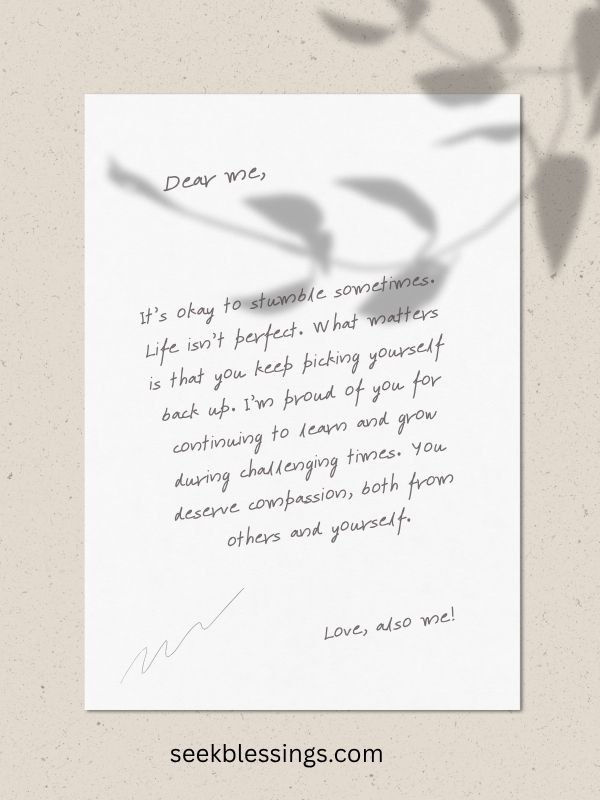 Dear me,
It's okay to stumble sometimes.
Life isn't perfect. What matters
is that you keep picking yourself
back up. I'm proud of you for
continuing to learn and grow
during challenging times. You
deserve compassion, both from
others and yourself.
Love, also me!
seekblessings.com